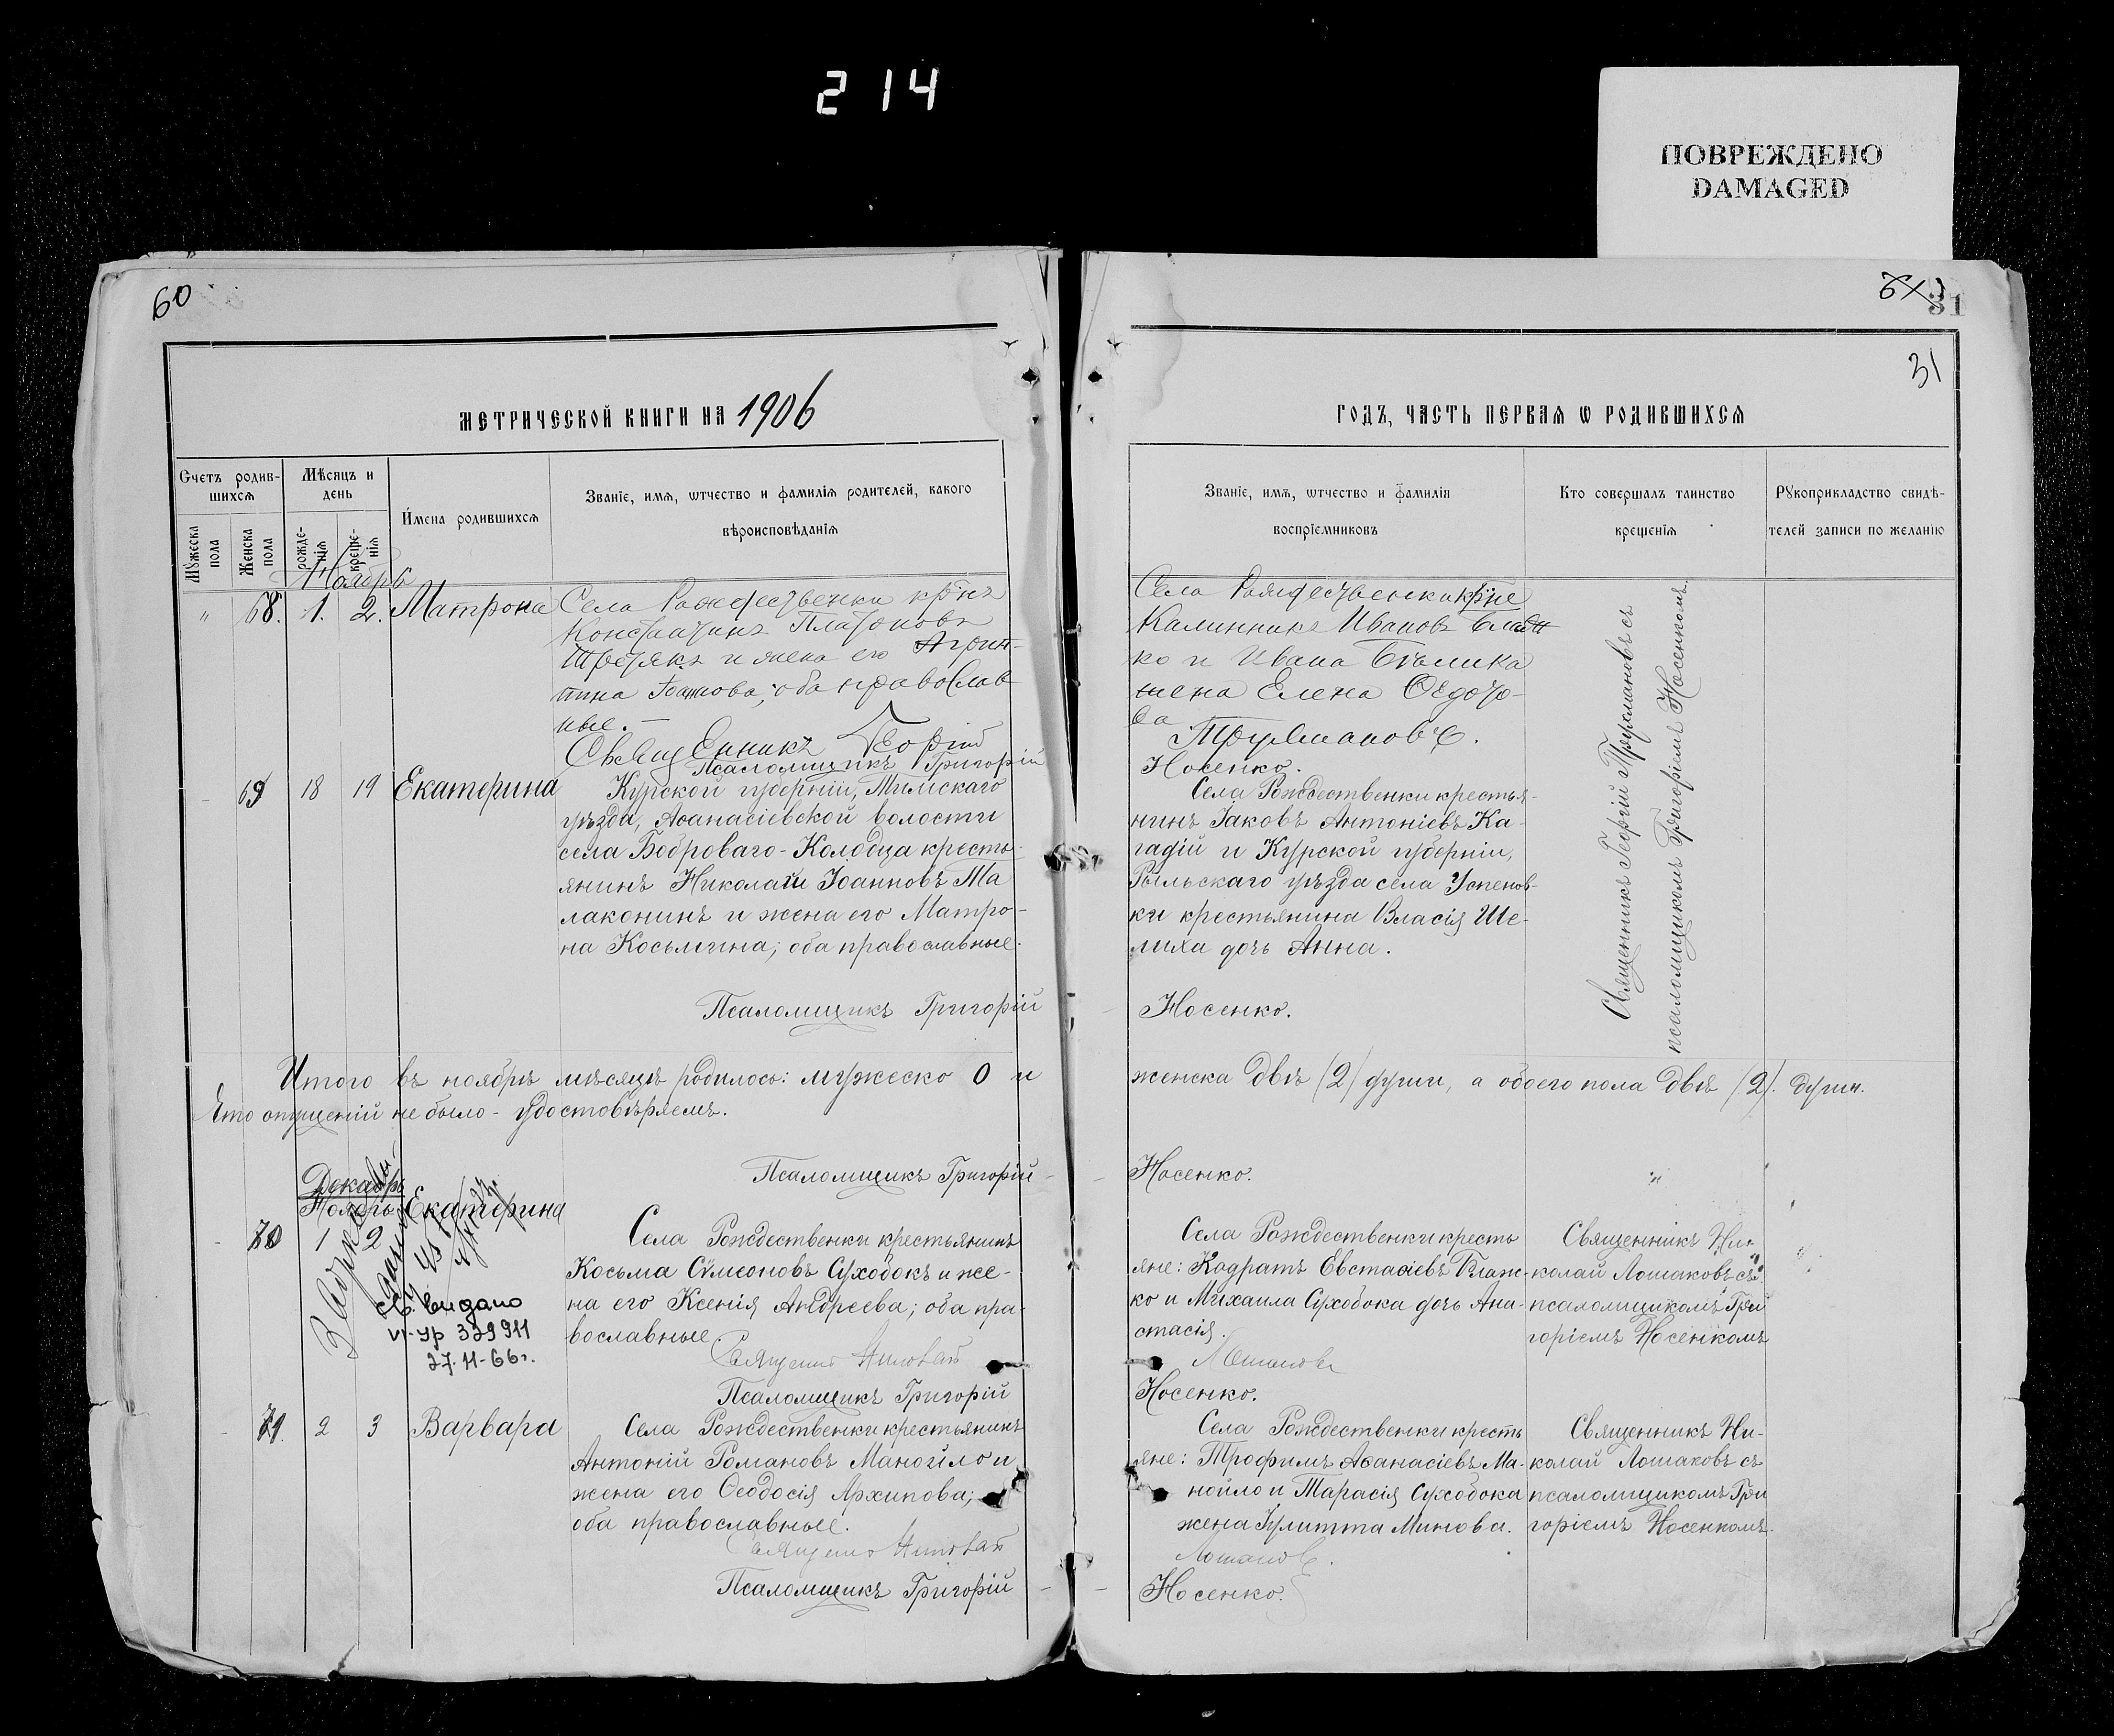 214
ПОВРЕЖДЕНО
DAMAGED
60
31
31
МЕТРИЧЕСКОЙ КНИГИ НА 1906
ГОДЪ, ЧАСТЬ ПЕРВАЯ Ѡ РОДИВШИХСЯ
Счетъ родив-
шихся
Мужеска пола
Женска пола
Мѣсяцъ и
день
рожде-
нія
креще-
нія
Имена родившихся
Званіе, имя, ѡтчество и фамилія родителей, какого
вѣроисповѣданія
Званіе, имя, ѡтчество и фамилія
воспріемниковъ
Кто совершалъ таинство
крещенія
Рукоприкладство свидѣ-
телей записи по желанію
Ноябрь
" 68. 1. 2. Матрона
Села Рождественки крнъ
Константинъ Платоновъ
Третякъ и жена его Агрип-
пина, оба православ
ные.
Священникъ Георгій
Псаломщикъ Григорій
Села Рождественки крне
Калинникъ Ивановъ
ко и Ивана Бѣлика
жена Елена Ѳедото-
ва
Трусмановъ.
Носенко.
Священникъ Георгій Трусмановъ съ
псаломщикомъ Григоріемъ Носенкомъ.
- 69 18 19 Екатерина
Курской губерніи, Тимскаго
уѣзда, Аѳанасіевской волости
села Боброваго-Колодца кресть-
янинъ Николай Іоанновъ Ма
лаконинъ и жена его Матро-
на Косьмина; оба православные.
Псаломщикъ Григорій
Села Рождественки крестья-
нинъ Іаковъ Антоніевъ Ка-
гадій и Курской губерніи,
Рыльскаго уѣзда села Успенов-
ки крестьянина Власія Ше-
лиха дочь Анна.
Носенко.
Итого въ ноябрѣ мѣсяцѣ родилось: мужеско 0 и
женска двѣ (2) души, а обоего пола двѣ (2). души.
Что опущеній не было - удостовѣряемъ.
Псаломщикъ Григорій
Носенко.
Декабрь
Ноябрь
- 70 1 2 Екатерина
выдано
VI-УР 329911
27-11-66г.
Села Рождественки крестьянинъ
Косьма Сѵмеоновъ Суховокъ и же-
на его Ксенія Андреева; оба пра-
вославные.
Священникъ Николай
Псаломщикъ Григорій
Села Рождественки кресть
яне: Кодратъ Евстаѳіевъ Блаж-
ко и Михаила Суховока дочь Ана-
стасія.
Лошаковъ
Носенко.
Священникъ Ни-
колай Лошаковъ съ
псаломщикомъ Гри
горіемъ Носенкомъ
- 71. 2 3 Варвара
Села Рождественки крестьянинъ
Антоній Романовъ Манойло и
жена его Ѳеодосія Архипова;
оба православные.
Священникъ Николай
Псаломщикъ Григорій
Села Рождественки кресть
яне: Трофимъ Аѳанасіевъ Ма-
нойло и Тарасія Суховока
жена Іулитта Минова.
Лошаковъ.
Носенко.
Священникъ Ни-
колай Лошаковъ съ
псаломщикомъ Гри
горіемъ Носенкомъ.